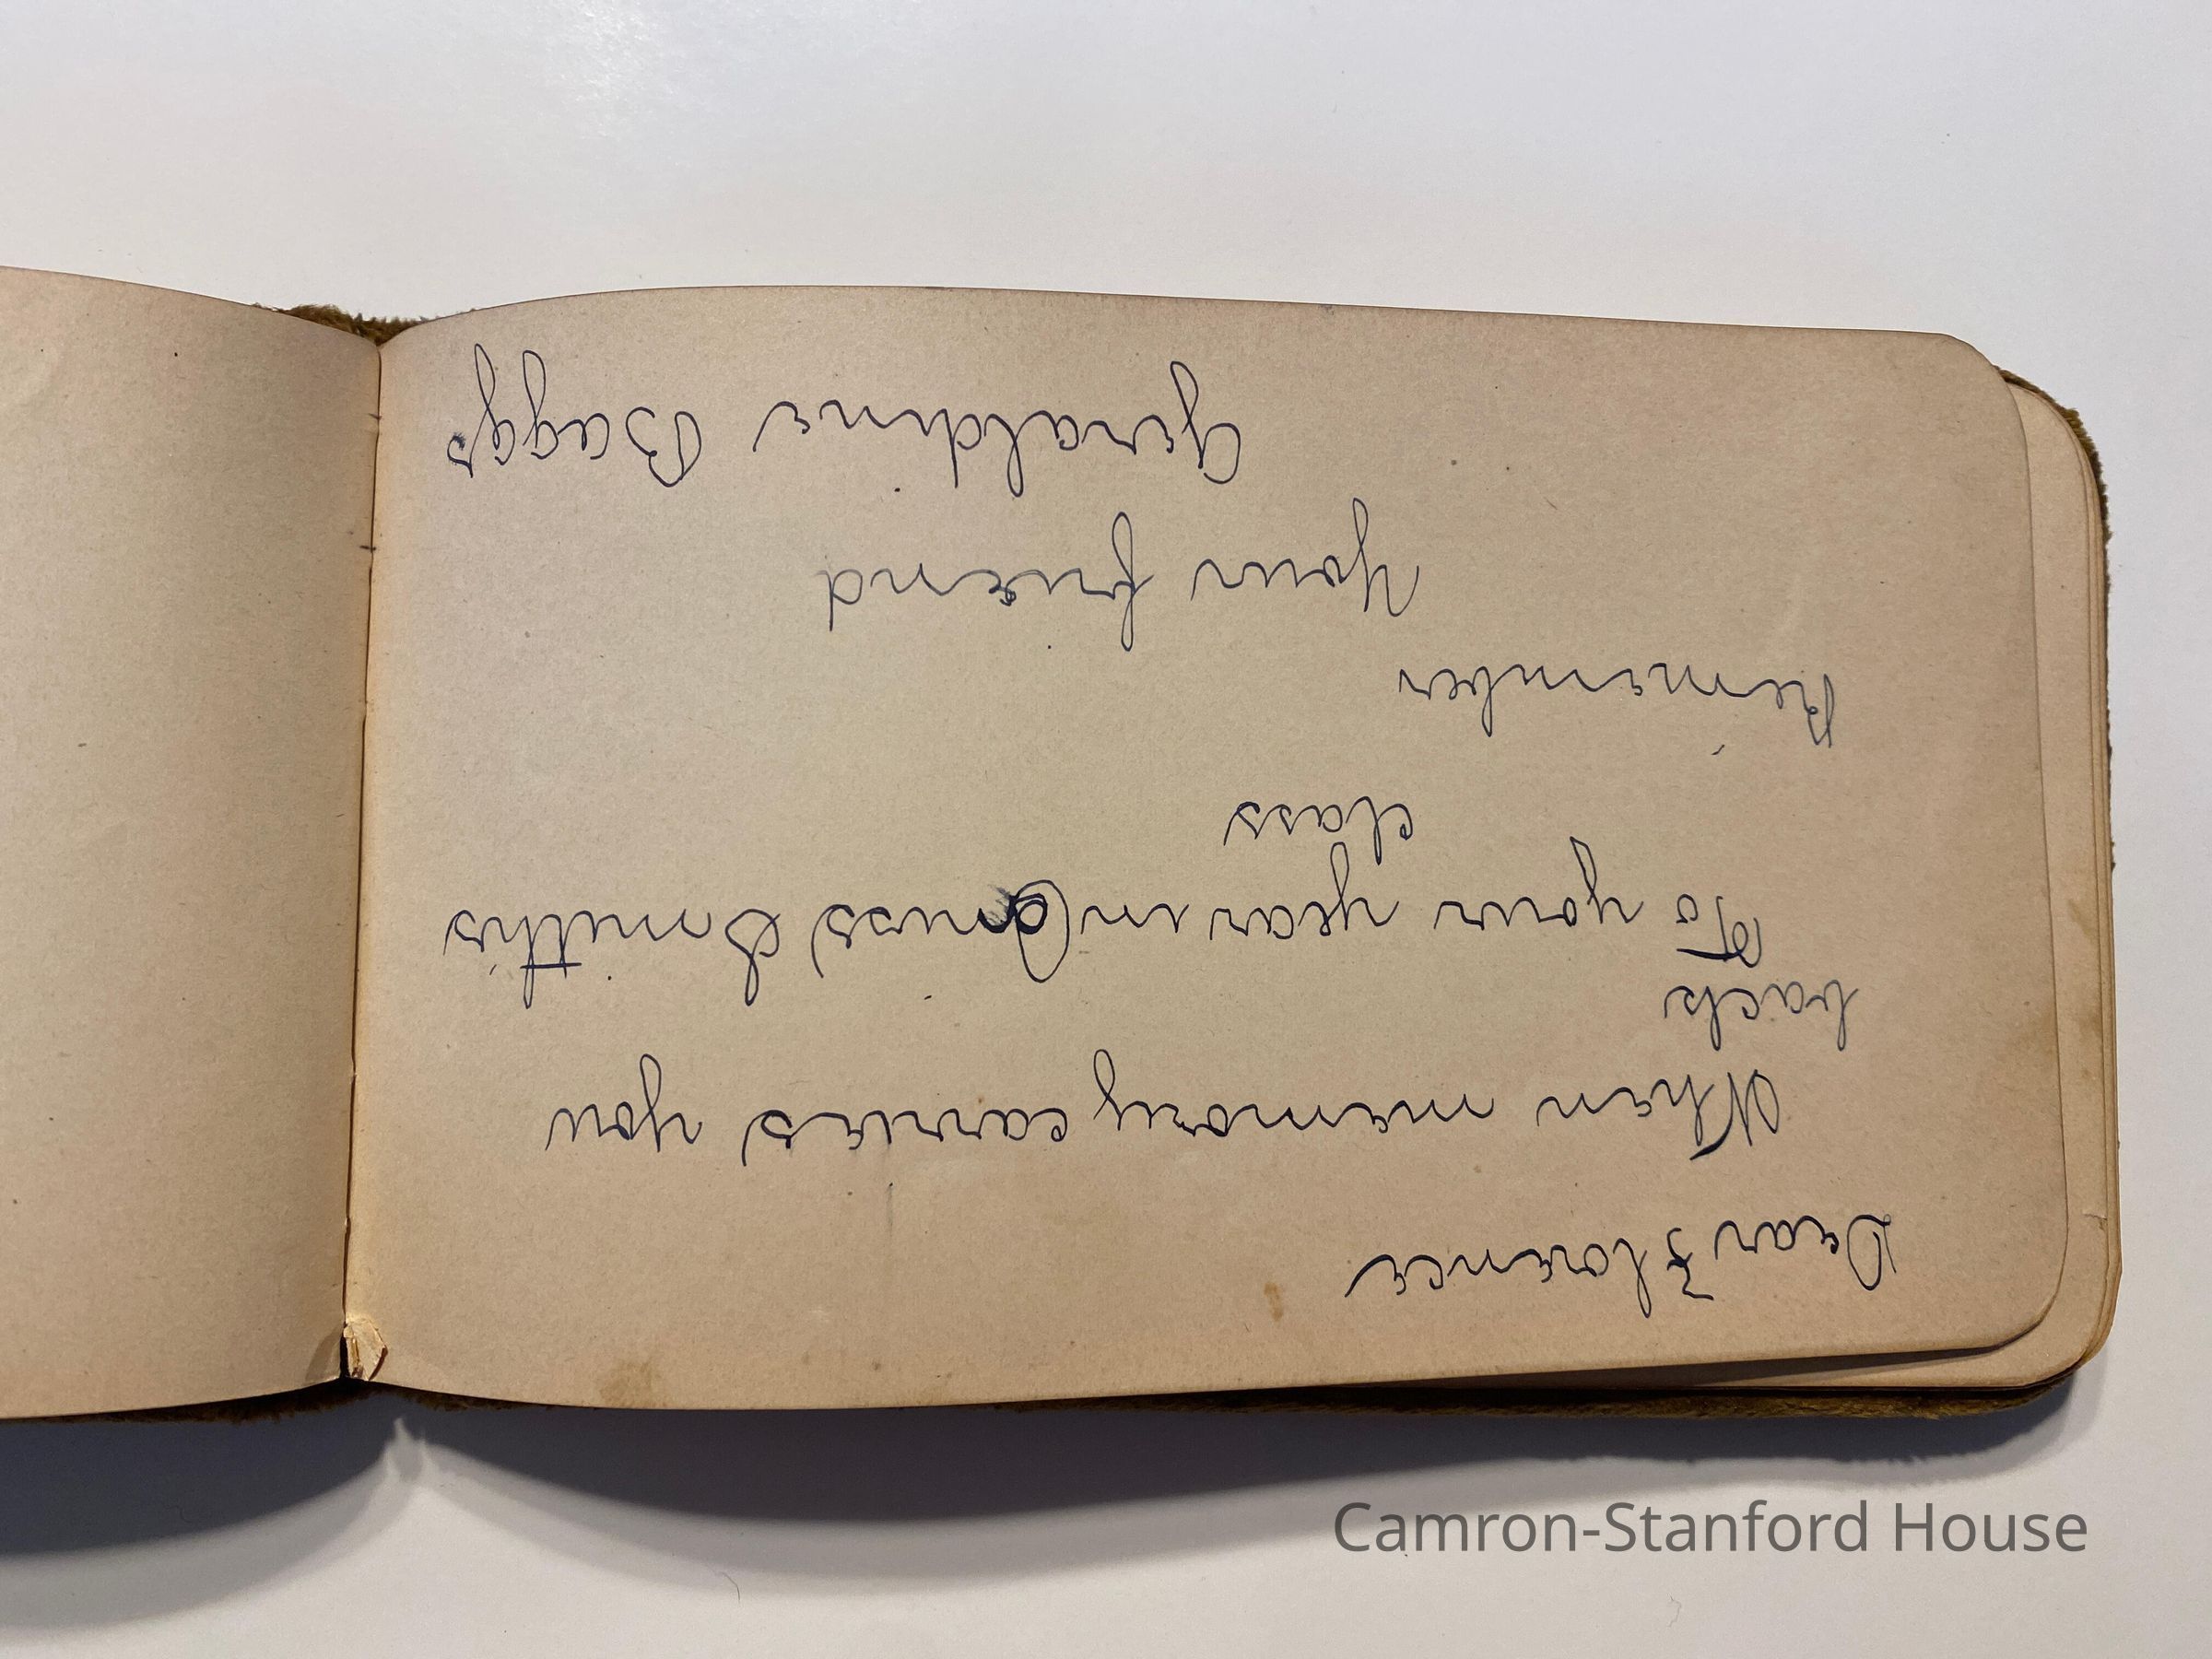 Dear Florence
When memory carries you
back
To your year in miss Smith's
class
Remember
Your friend
Geraldine Baggs
Camron-Stanford House